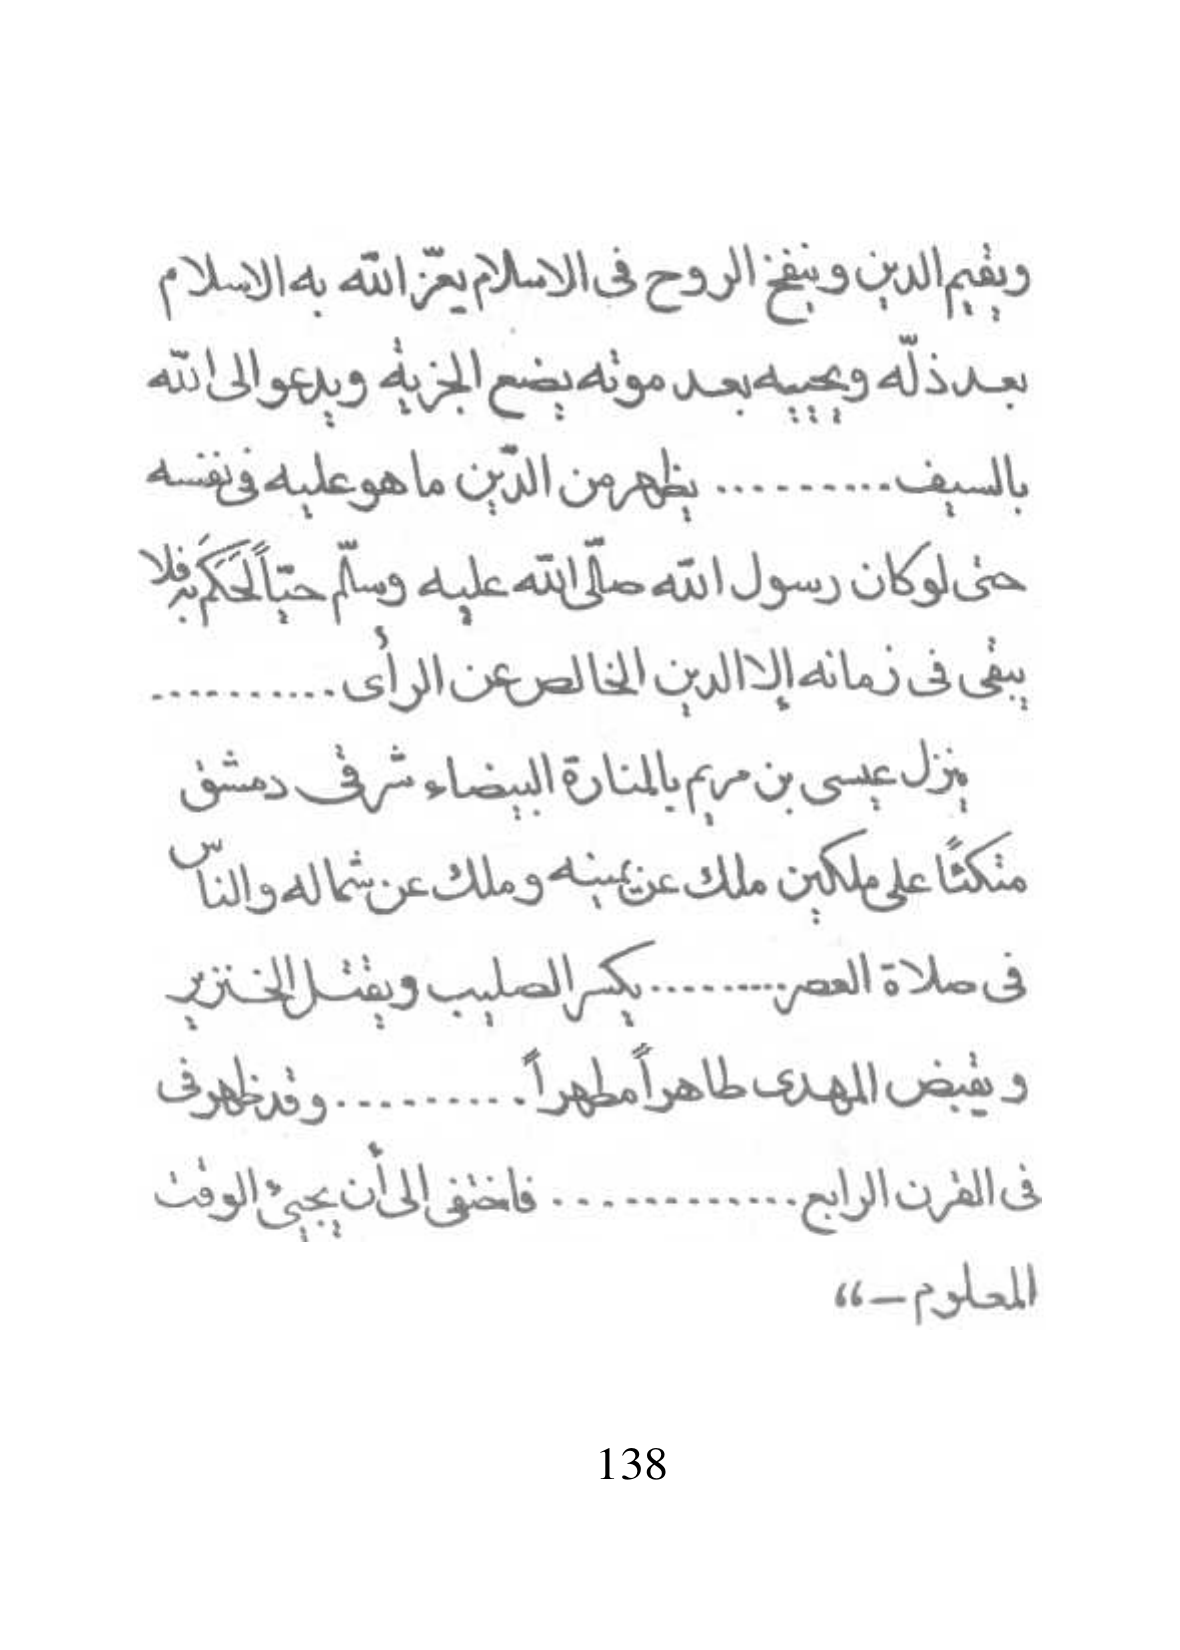 ويقيم الدين وينفخ الروح فى الاسلام يعزّ الله به الاسلام
بعد ذلّه ويحييه بعد موته يضع الجزية ويدعو الى الله
بالسيف.......... يظهر من الدّين ما هو عليه فى نفسه
حتى لو كان رسول الله صلّى الله عليه وسلّم حيّاً لحَكَمَ به فلا
يبقى فى زمانه إلا الدين الخالص عن الرأى..........
ينزل عيسى بن مريم بالمنارة البيضاء شرقى دمشق
متكئًا على ملكين ملك عن يمينه وملك عن شماله والناس
فى صلاة العصر.......... يكسر الصليب ويقتل الخنزير
ويقبض المهدى طاهراً مطهراً.......... وقد ظهر فى
فى القرن الرابع............. فاختفى الى أن يجيئ الوقت
المعلوم ــ“
138